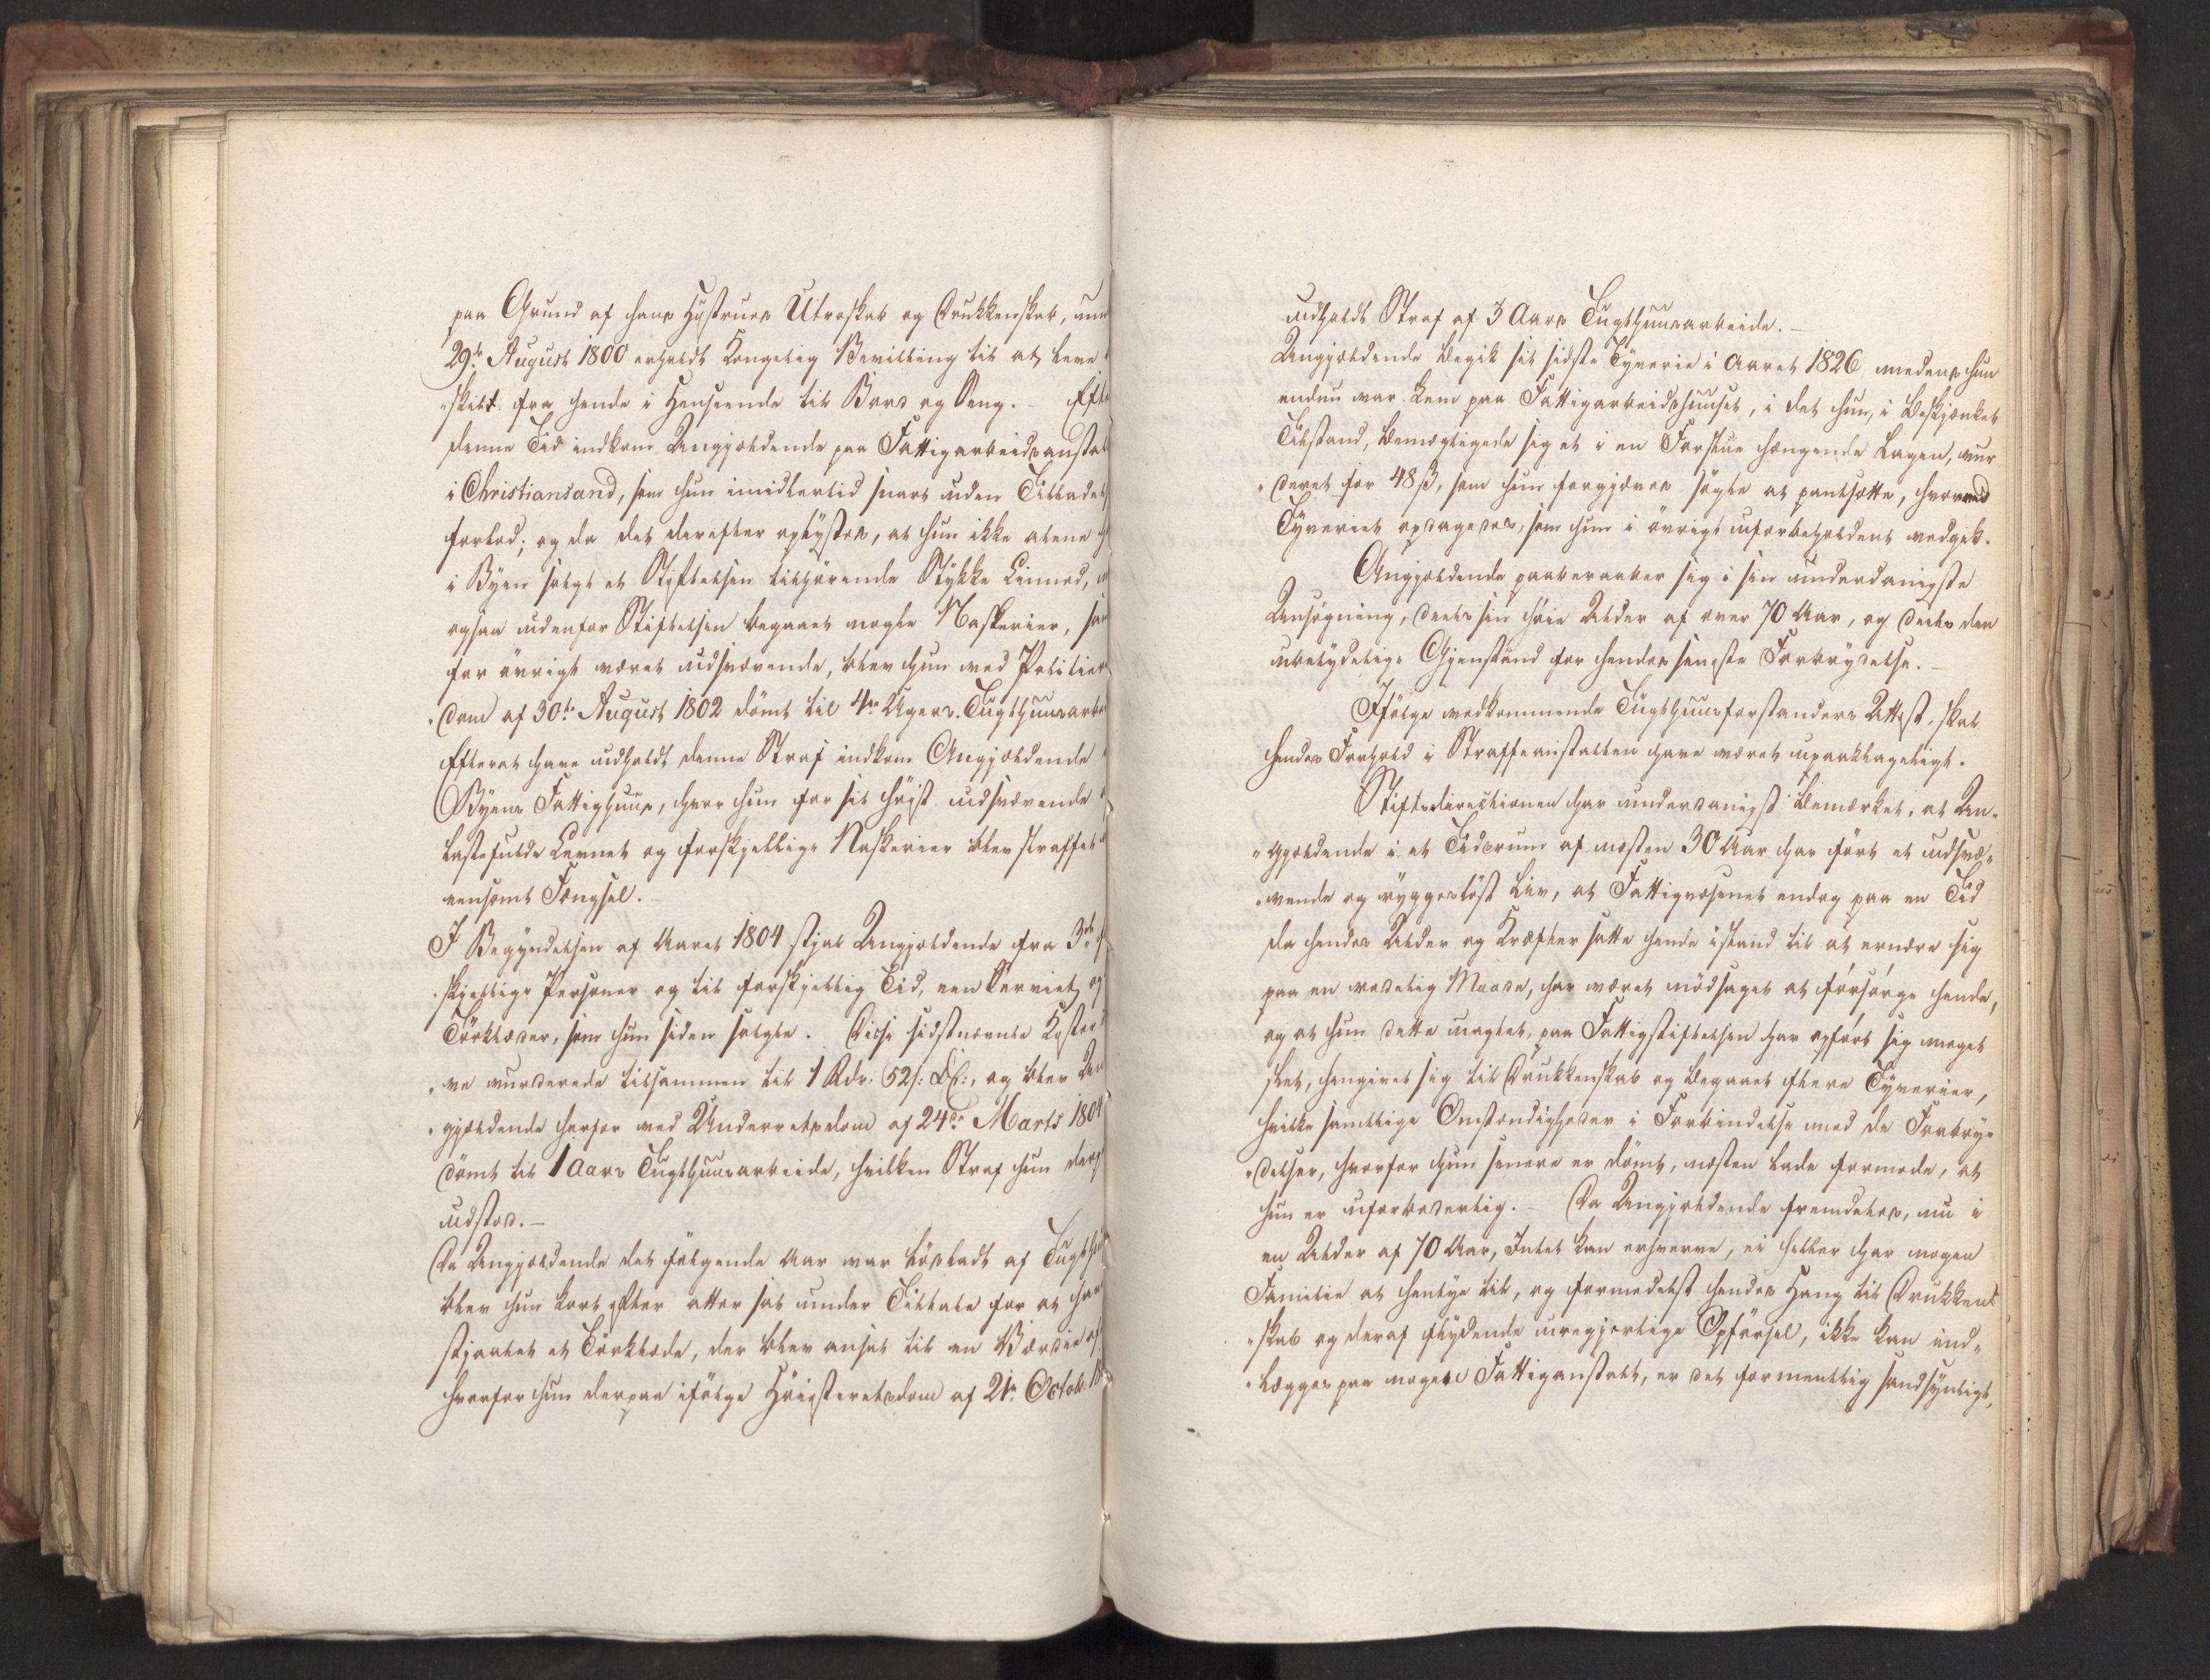 paa Grund af hans Hustrues Utroskab og Drukkenskab, un
29de August 1800 erholdt Kongelig Bevilling til at leve
„skilt fra hende i Henseende til Bord og Seng. – Eft
denne Tid indkom Angjældende paa Fattigarbeidsanstal
i Christiansand, som hun imidlertid snart uden Tilladel
forlod; og da det derefter oplystes, at hun ikke alene
i Byen solgt et Stiftelsen tilhørende Stykke Linned,
ogsaa udenfor Stiftelsen begaaet nogle Naskerier, sa
for øvrigt været udsvævende, blev hun ved Politier
„dom af 30te August 1802 dømt til 4re Ugers Tugthuusarbe
Efterat have udholdt denne Straf indkom Angjældende
Byens Fattighuus, hvor hun for sit høist udsvævende
lastefulde Levnet og forskjellige Naskerier blev straffet
eensomt Fængsel. –
I Begyndelsen af Aaret 1804 stjal Angjældende fra 3de
„skjellige Personer og til forskjellig Tid, een Serviet og
Tørklæder, som hun siden solgte. Disse sidstnævnte Koster
„ne vurderede tilsammen til 1 Rdr. 52 s: D.C:, og blev An
„gjældende herfor ved Underretsdom af 24de Marts 1804
dømt til 1 Aars Tugthuusarbeide, hvilken Straf hun derp
udstod. –
Da Angjældende det følgende Aar var løsladt af Tugth
blev hun kort efter atter sat under Tiltale for at ha
stjaalet et Tørklæde, der blev anset til en Værdie af
hvorfor hun derpaa ifølge Høiesteretsdom af 21e Octob. 18
udholdt Straf af 3 Aars Tugthuusarbeide. –
Angjældende begik sit sidste Tyverie i Aaret 1826 medens hun
endnu var Lem paa Fattigarbeidshuuset, i det hun, i beskjænket
Tilstand, bemægtigede sig et i en Forstue hængende Lagen, vur
„deret for 48 ß, som hun forgjæves søgte at pantsætte, hvorved
Tyveriet opdagedes, som hun i øvrigt uforbeholdent vedgik.
Angjældende paaberaaber sig i sin underdanigste
Ansøgning, deels sin høie Alder af over 70 Aar, og deels den
ubetydelige Gjenstand for hendes seneste Forbrydelse. –
Ifølge vedkommende Tugthuusforstanders Attest, skal
hendes Forhold i Straffeanstalten have været upaaklageligt.
Stiftsdirectionen har underdanigst bemærket, at An„
„gjældende i et Tidsrum af næsten 30 Aar har ført et udsvæ„
„vende og ryggesløst Liv, at Fattigvæsenet endog paa en Tid
da hendes Alder og Kræfter satte hende istand til at ernære sig
paa en redelig Maade, har været nødsaget at forsørge hende,
og at hun dette uagtet, paa Fattigstiftelsen har opført sig meget
slet, hengivet sig til Drukkenskab og begaaet flere Tyverier,
hvilke samtlige Omstændigheder i Forbindelse med de Forbry„
„delser, hvorfor hun senere er dømt, næsten lade formode, at
hun er uforbederlig. – Da Angjældende fremdeles, nu i
en Alder af 70 Aar, Intet kan erhverve, ei heller har nogen
Familie at hentye til, og formedelst hendes Hang til Drukken„
„skab og deraf flydende uregjerlige Opførsel, ikke kan ind„
„lægges paa nogen Fattiganstalt, er det formentlig sandsynligt,